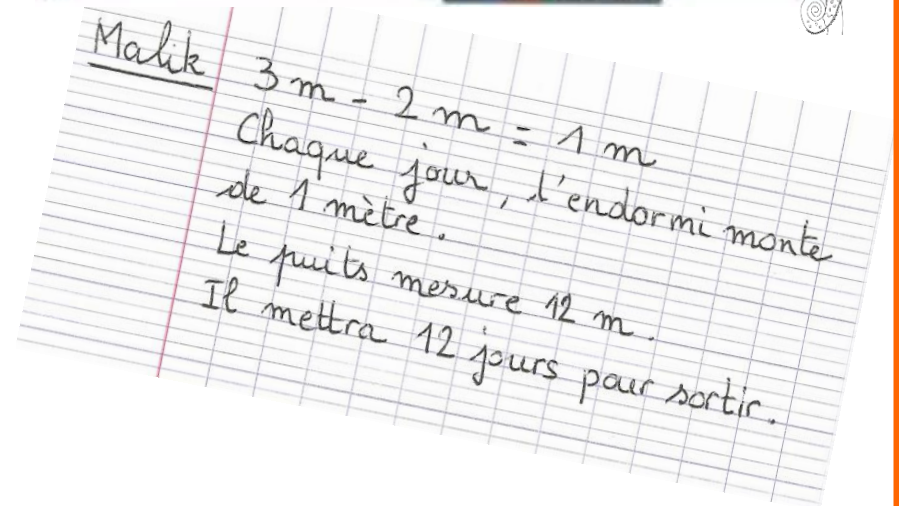 Malik 3 m - 2 m = 1 m
Chaque jour, l'endormi monte
de 1 mètre.
Le puits mesure 12 m.
Il mettra 12 jours pour sortir.